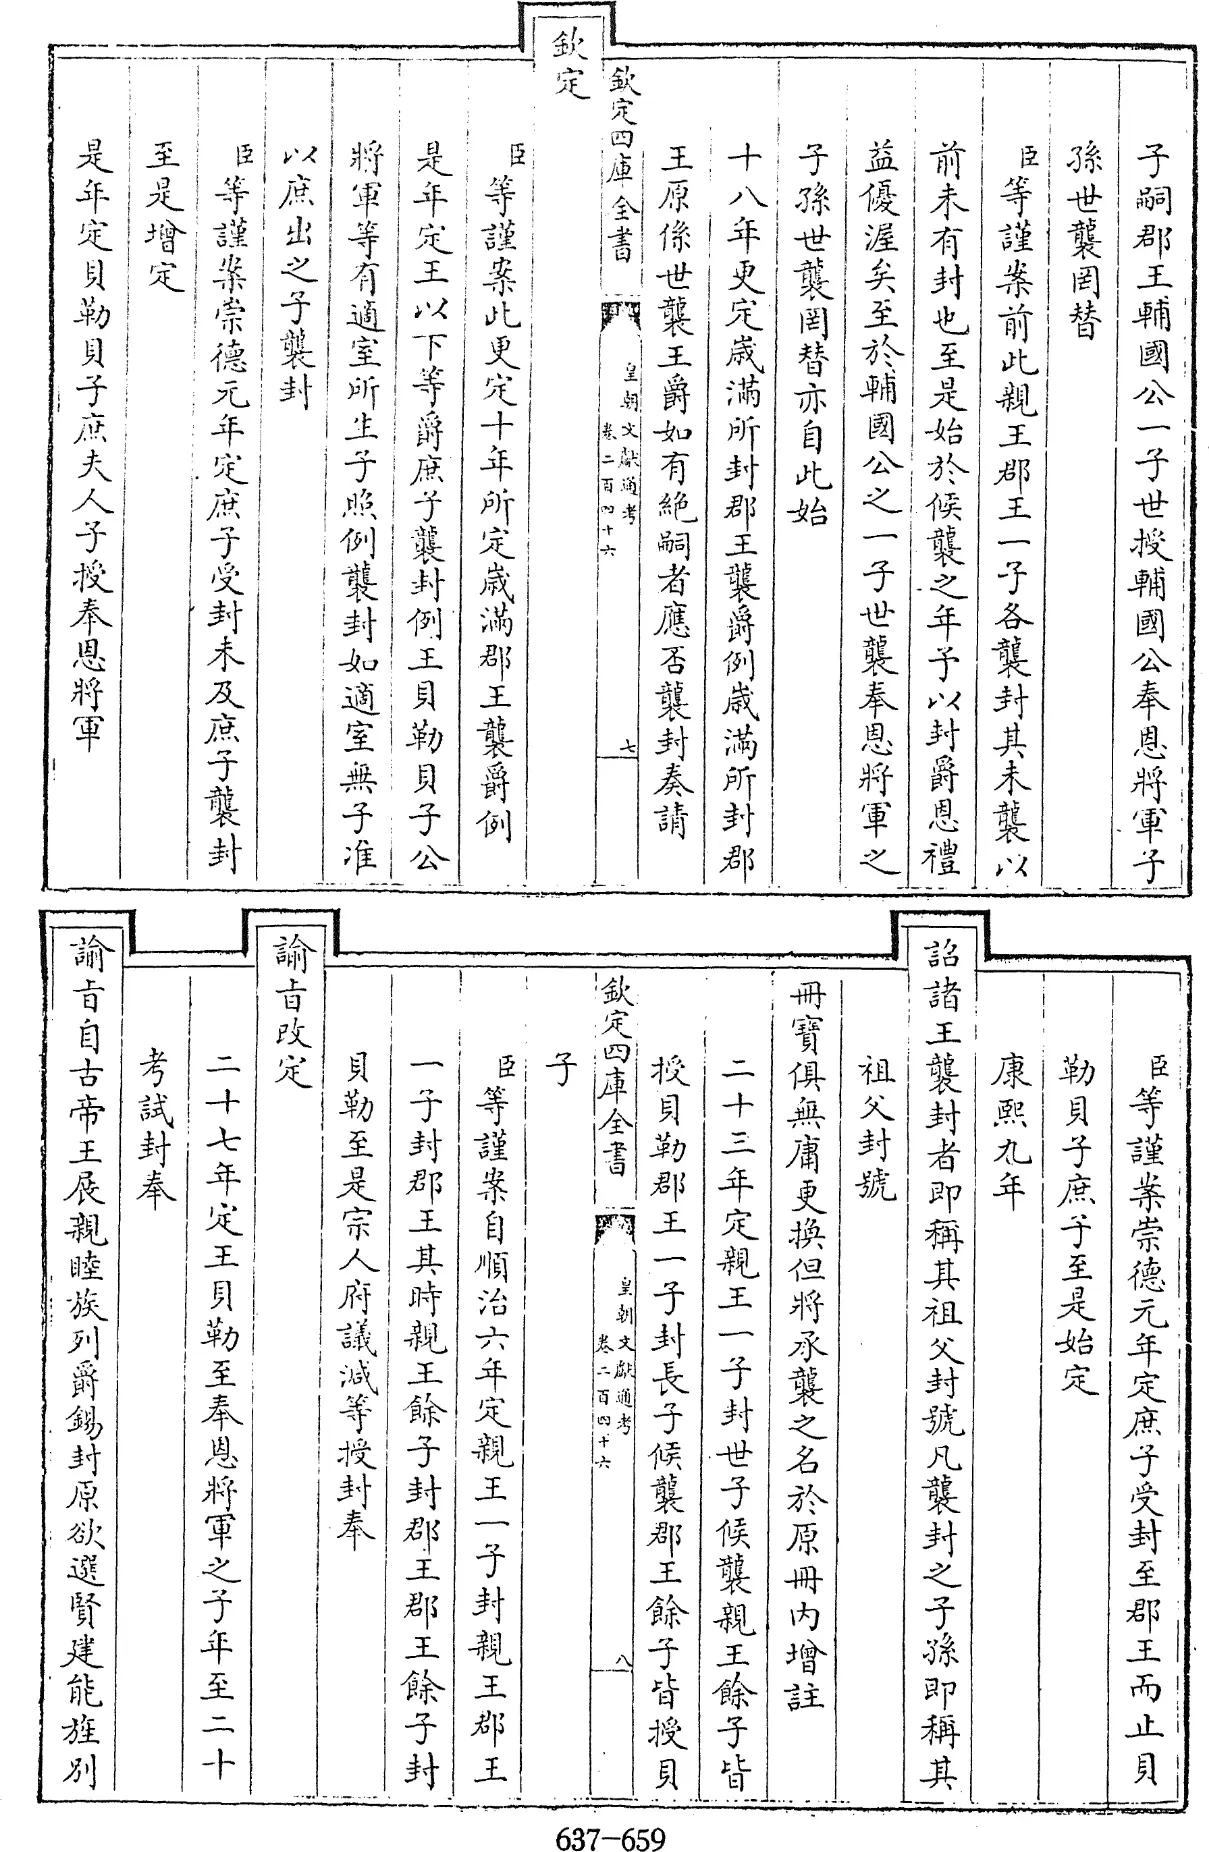 子嗣郡王輔國公一子世授輔國公奉恩將軍子
孫世襲罔替
臣等謹案前此親王郡王一子各襲封其未襲以
前未有封也至是始於候襲之年予以封爵恩禮
益優渥矣至於輔國公之一子世襲奉恩將軍之
子孫世襲罔替亦自此始
十八年更定歲滿所封郡王襲爵例歲滿所封郡
王原係世襲王爵如有絶嗣者應否襲封奏請
欽定四庫全書
皇朝文獻通考
卷二百四十六
七
欽定
臣等謹案此更定十年所定歲滿郡王襲爵例
是年定王以下等爵庶子襲封例王貝勒貝子公
將軍等有適室所生子照例襲封如適室無子准
以庶出之子襲封
臣等謹案崇德元年定庶子受封未及庶子襲封
至是增定
是年定貝勒貝子庶夫人子授奉恩將軍
臣等謹案崇德元年定庶子受封至郡王而止貝
勒貝子庶子至是始定
康熙九年
詔諸王襲封者即稱其祖父封號凡襲封之子孫即稱其
祖父封號
冊寶俱無庸更換但將承襲之名於原冊内增註
二十三年定親王一子封世子候襲親王餘子皆
授貝勒郡王一子封長子候襲郡王餘子皆授貝
欽定四庫全書
皇朝文獻通考
卷二百四十六
八
子
臣等謹案自順治六年定親王一子封親王郡王
一子封郡王其時親王餘子封郡王郡王餘子封
貝勒至是宗人府議減等授封奉
諭旨改定
二十七年定王貝勒至奉恩將軍之子年至二十
考試封奉
諭旨自古帝王展親睦族列爵錫封原欲選賢建能旌別
637-659